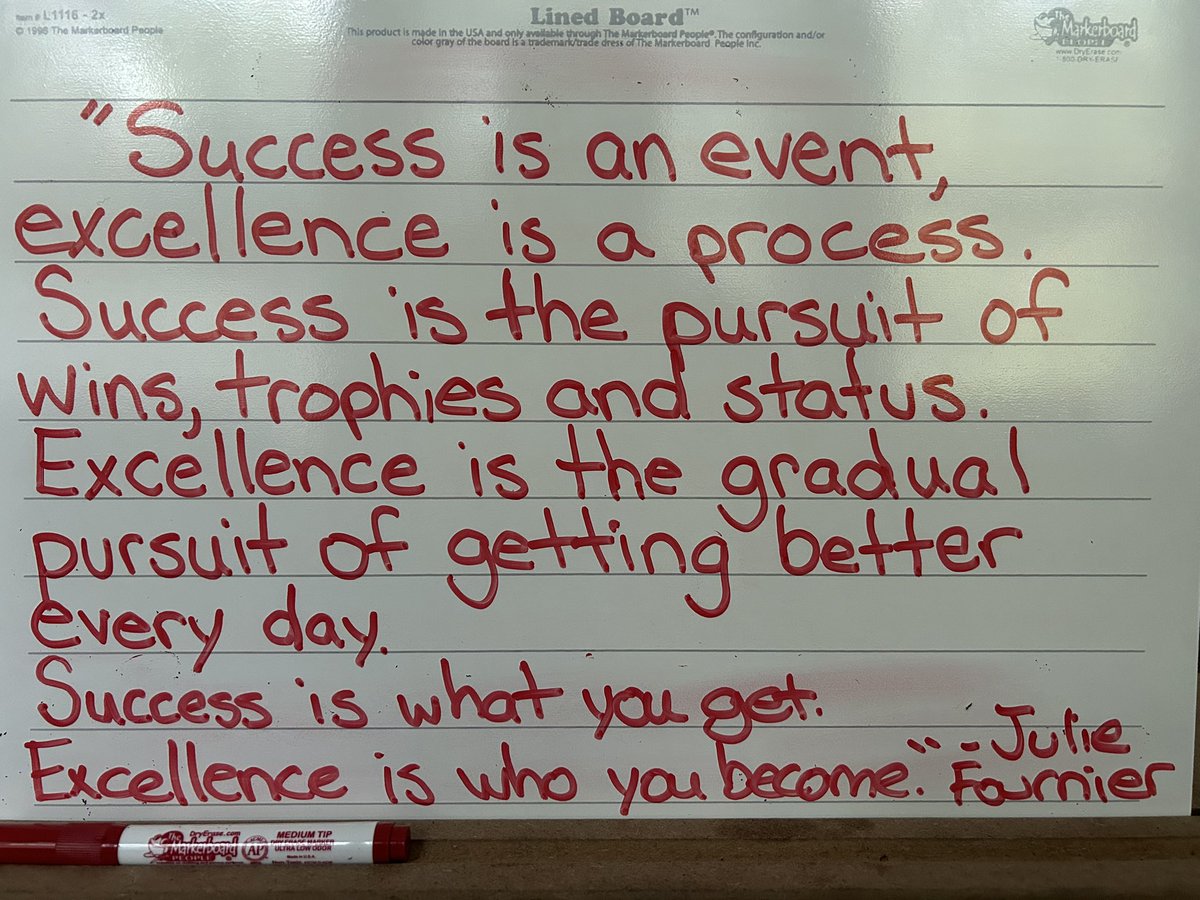 Item # L1116 - 2x
© 1996 The Markerboard People
Lined Board™
This product is made in the USA and only available through The Markerboard People®. The configuration and/or
color gray of the board is a trademark/trade dress of The Markerboard People Inc.
The Markerboard
PEOPLE
www.DryErase.com
1-800-DRY-ERASE
"Success is an event,
excellence is a process.
Success is the pursuit of
wins, trophies and status.
Excellence is the gradual
pursuit of getting better
every day.
Success is what you get.
Excellence is who you become." - Julie
Fournier
DryErase.com
The Markerboard
PEOPLE
AP
MEDIUM TIP
DRY ERASE MARKER
ULTRA LOW ODOR
Made in U.S.A.